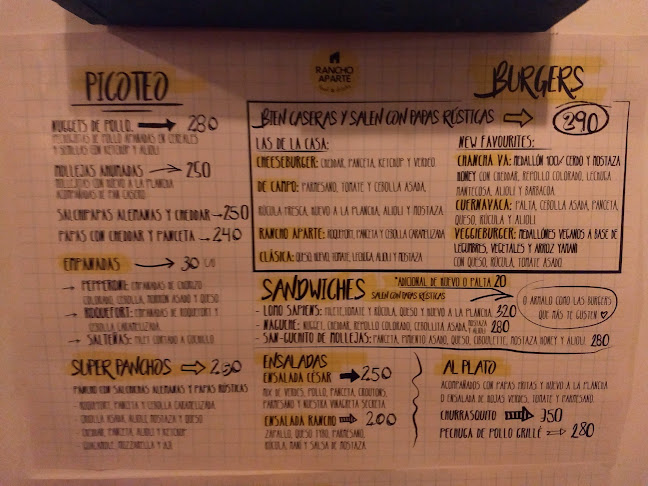 RANCHO
APARTE
PICOTEO
NUGGETS DE POLLO. 280
PECHUGUITAS DE POLLO APANADAS EN CEREALES
Y SEMILLAS CON KETCHUP Y ALIOLI
MOLLEJAS AHUMADAS 250
MOLLEJITAS CON HUEVO A LA PLANCHA
ACOMPAÑADAS DE PAN CASERO
SALCHIPAPAS ALEMANAS Y CHEDDAR 250
PAPAS CON CHEDDAR Y PANCETA 240
EMPANADAS 30 C/U
PEPPERONI: EMPANADAS DE CHORIZO
COLORADO, CEBOLLA, MORRÓN ASADO Y QUESO
ROQUEFORT: EMPANADAS DE ROQUEFORT Y
CEBOLLA CARAMELIZADA.
SALTEÑAS: CORTADO A CUCHILLO
SUPER PANCHOS 230
PANCHO CON SALCHICHAS ALEMANAS Y PAPAS RÚSTICAS
- ROQUEFORT, PANCETA Y CEBOLLA CARAMELIZADA
- CRIOLLA ASADA, ALIOLI, MOSTAZA Y QUESO
- CHEDDAR, PANCETA, ALIOLI Y KETCHUP
- GUACAMOLE, MOZZARELLA Y AJI
BURGERS
BIEN CASERAS Y SALEN CON PAPAS RÚSTICAS 290
LAS DE LA CASA:
CHEESEBURGER: CHEDDAR, PANCETA, KETCHUP Y VERDEO.
DE CAMPO: PARMESANO, TOMATE Y CEBOLLA ASADA,
RÚCULA FRESCA, HUEVO A LA PLANCHA, ALIOLI Y MOSTAZA
RANCHO APARTE: ROQUEFORT, PANCETA Y CEBOLLA CARAMELIZADA
CLÁSICA: QUESO, HUEVO, TOMATE, LECHUGA, ALIOLI Y MOSTAZA
NEW FAVOURITES:
CHANCHA VA: MEDALLÓN 100% CERDO Y MOSTAZA
HONEY CON CHEDDAR, REPOLLO COLORADO, LECHUGA
MANTECOSA, ALIOLI Y BARBACOA.
CUERNAVACA: PALTA, CEBOLLA ASADA, PANCETA,
QUESO, RÚCULA Y ALIOLI
VEGGIEBURGER: MEDALLONES VEGANOS A BASE DE
LEGUMBRES, VEGETALES Y ARROZ YAMANI
CON QUESO, RÚCULA, TOMATE ASADO.
*ADICIONAL DE HUEVO O PALTA 20
SANDWICHES SALEN CON PAPAS RÚSTICAS
O ARMALO COMO LAS BURGERS
QUE MÁS TE GUSTEN
- LOMO SAPIENS: TOMATE Y RÚCULA, QUESO Y HUEVO A LA PLANCHA 320
- NAGUEHE: NUGGET, CHEDDAR, REPOLLO COLORADO, CEBOLLITA ASADA, MOSTAZA Y ALIOLI 280
- SAN-GUCHITO DE MOLLEJAS: PANCETA, PIMIENTO ASADO, QUESO, CIBOULETTE, MOSTAZA HONEY Y ALIOLI 280
ENSALADAS
ENSALADA CÉSAR 250
MIX DE VERDES, POLLO, PANCETA, CROUTONS,
PARMESANO Y NUESTRA VINAGRETA SECRETA
ENSALADA RANCHO 200
ZAPALLO, QUESO TYBO, PARMESANO,
RÚCULA, MANÍ Y SALSA DE MOSTAZA
AL PLATO
ACOMPAÑADOS CON PAPAS FRITAS Y HUEVO A LA PLANCHA
O ENSALADA DE HOJAS VERDES, TOMATE Y PARMESANO.
CHURRASQUITO 350
PECHUGA DE POLLO GRILLÉ 280